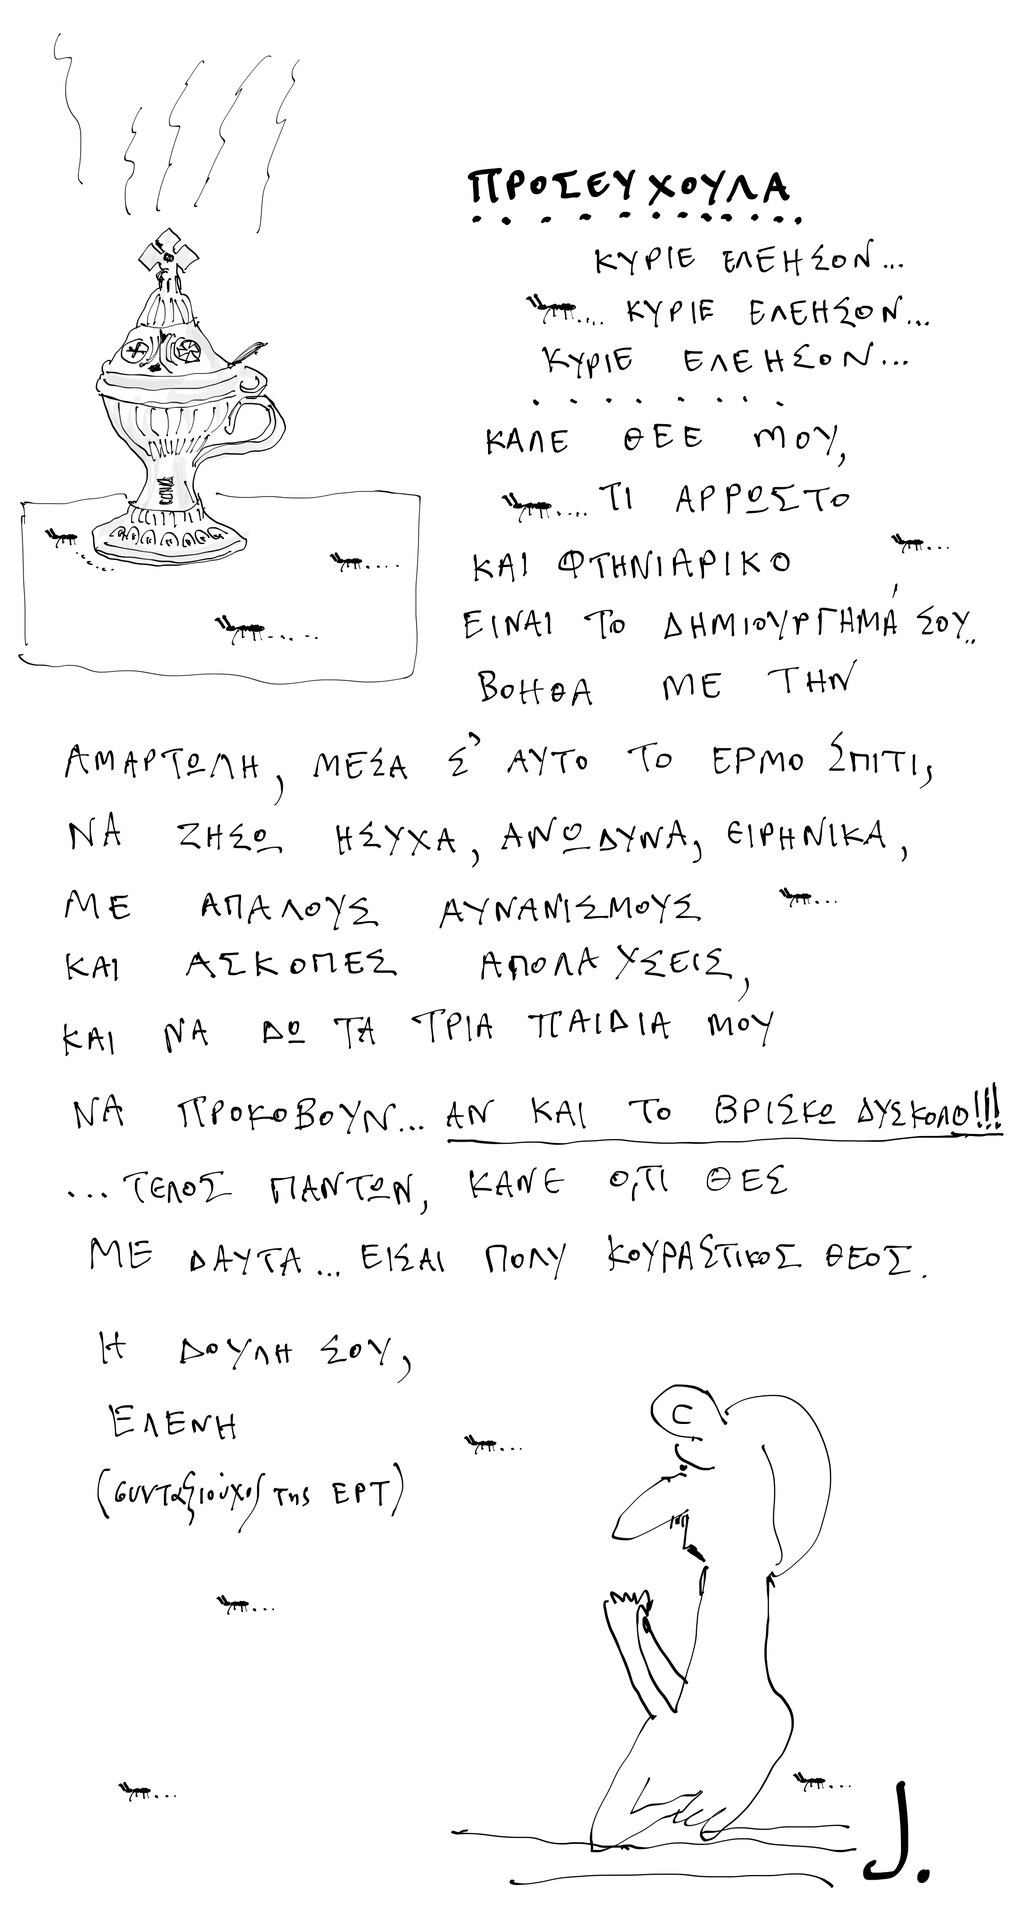 ΠΡΟΣΕΥΧΟΥΛΑ
ΚΥΡΙΕ ΕΛΕΗΣΟΝ...
.... ΚΥΡΙΕ ΕΛΕΗΣΟΝ...
ΚΥΡΙΕ ΕΛΕΗΣΟΝ...
ΚΑΛΕ ΘΕΕ ΜΟΥ,
.... ΤΙ ΑΡΡΩΣΤΟ
ΚΑΙ ΦΤΗΝΙΑΡΙΚΟ
ΕΙΝΑΙ ΤΟ ΔΗΜΙΟΥΡΓΗΜΆ ΣΟΥ..
ΒΟΗΘΑ ΜΕ ΤΗΝ
ΑΜΑΡΤΩΛΗ, ΜΕΣΑ Σ' ΑΥΤΟ ΤΟ ΕΡΜΟ ΣΠΙΤΙ,
ΝΑ ΖΗΣΩ ΗΣΥΧΑ, ΑΝΩΔΥΝΑ, ΕΙΡΗΝΙΚΑ,
ΜΕ ΑΠΑΛΟΥΣ ΑΥΝΑΝΙΣΜΟΥΣ
ΚΑΙ ΑΣΚΟΠΕΣ ΑΠΟΛΑΥΣΕΙΣ,
ΚΑΙ ΝΑ ΔΩ ΤΑ ΤΡΙΑ ΠΑΙΔΙΑ ΜΟΥ
ΝΑ ΠΡΟΚΟΒΟΥΝ... ΑΝ ΚΑΙ ΤΟ ΒΡΙΣΚΩ ΔΥΣΚΟΛΟ!!!
...ΤΕΛΟΣ ΠΑΝΤΩΝ, ΚΑΝΕ Ο,ΤΙ ΘΕΣ
ΜΕ ΔΑΥΤΑ... ΕΙΣΑΙ ΠΟΛΥ ΚΟΥΡΑΣΤΙΚΟΣ ΘΕΟΣ.
Η ΔΟΥΛΗ ΣΟΥ,
ΕΛΕΝΗ
(συνταξιούχος της ΕΡΤ)
J.